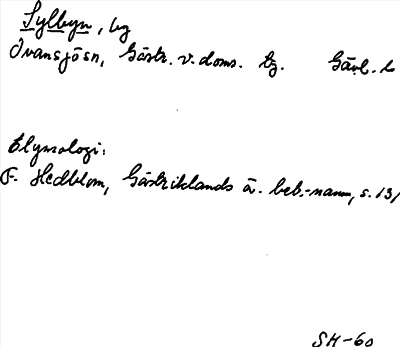 Sylbyn, by
Ovansjösn, Gästr. v. doms. tg. Gävl. l
Etymologi:
F. Hedblom, Gästriklands ä. beb.-namn, s. 131
SH-60